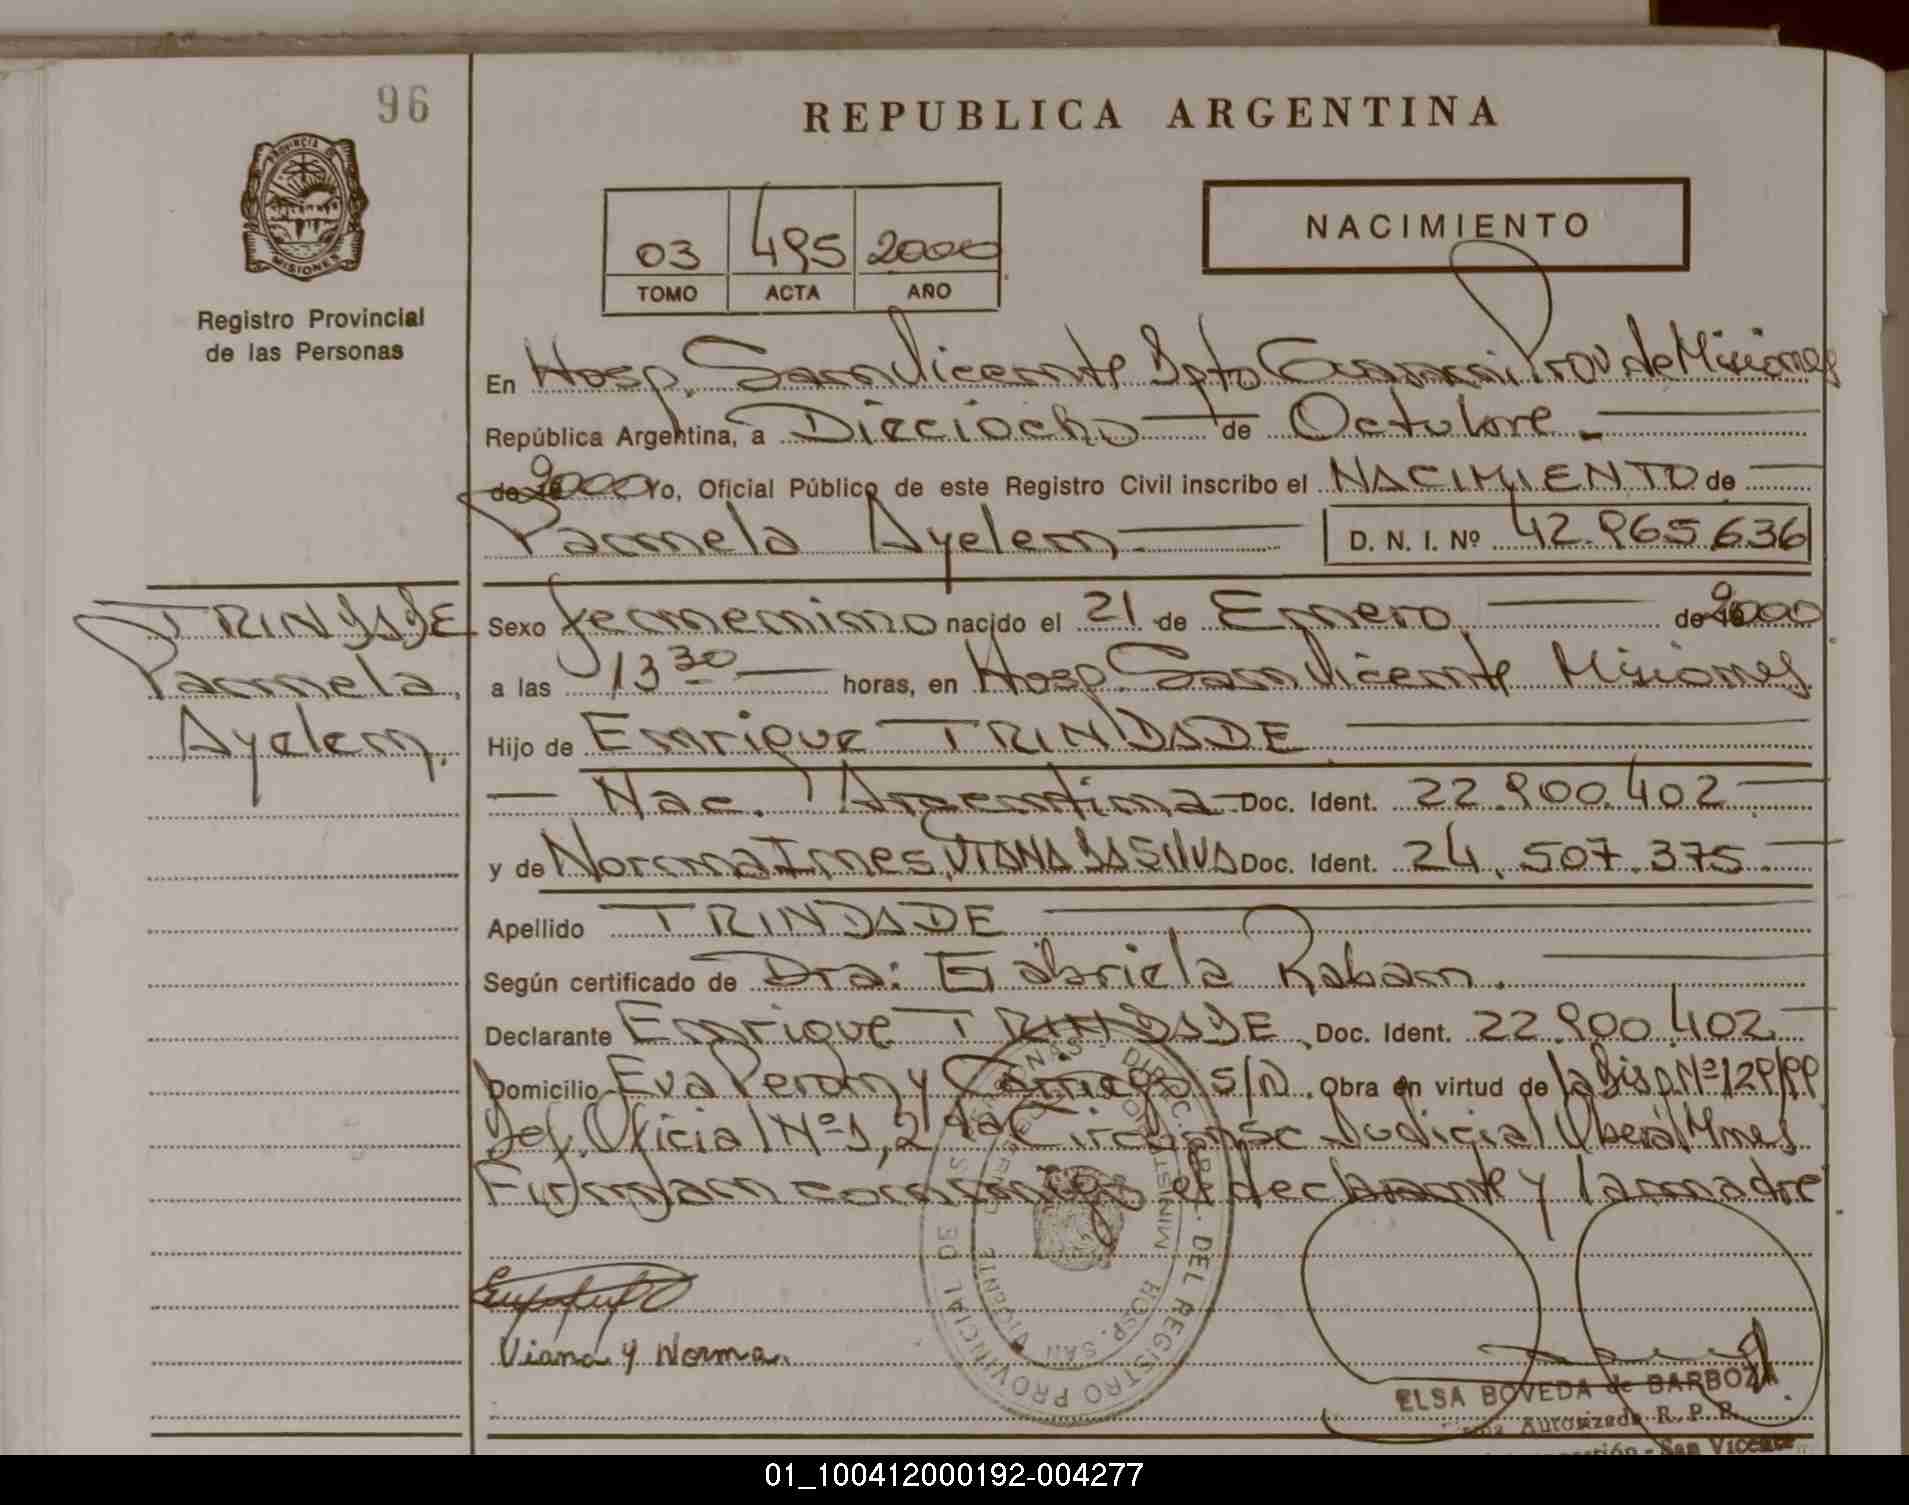 96
REPUBLICA ARGENTINA
PROVINCIA DE
MISIONES
Registro Provincial
de las Personas
03 495 2000
TOMO ACTA AÑO
NACIMIENTO
En Hosp. San Vicente Dpto Guarani Prov de Misiones
República Argentina, a Dieciocho de Octubre.
de 2000 Yo, Oficial Público de este Registro Civil inscribo el NACIMIENTO de
Pamela Ayelem D. N. I. Nº 42.965.636
TRINDADE
Pamela
Ayelem.
Sexo femenino nacido el 21 de Enero de 2000
a las 13 30 horas, en Hosp. San Vicente Misiones
Hijo de Enrique TRINDADE
Nac. Argentina Doc. Ident. 22.900.402
y de Norma Ines, VIANA DA SILVA Doc. Ident. 24.507.375
Apellido TRINDADE
Según certificado de Dra: Gabriela Raban.
Declarante Enrique TRINDADE, Doc. Ident. 22.900.402
Domicilio Eva Peron y s/n. Obra en virtud de la Disp. Nº 129/99
Def. Oficial Nº 1, 2da Circunsc Judicial Obera Mnes
Firman conmigo el declarante y la madre
Viana y Norma.
DIREC. GRAL. DEL REGISTRO PROVINCIAL DE LAS PERSONAS
HOSP. SAN VICENTE
ELSA BOVEDA de BARBOZA
Autorizada R. P. P.
San Vicente
01_100412000192-004277